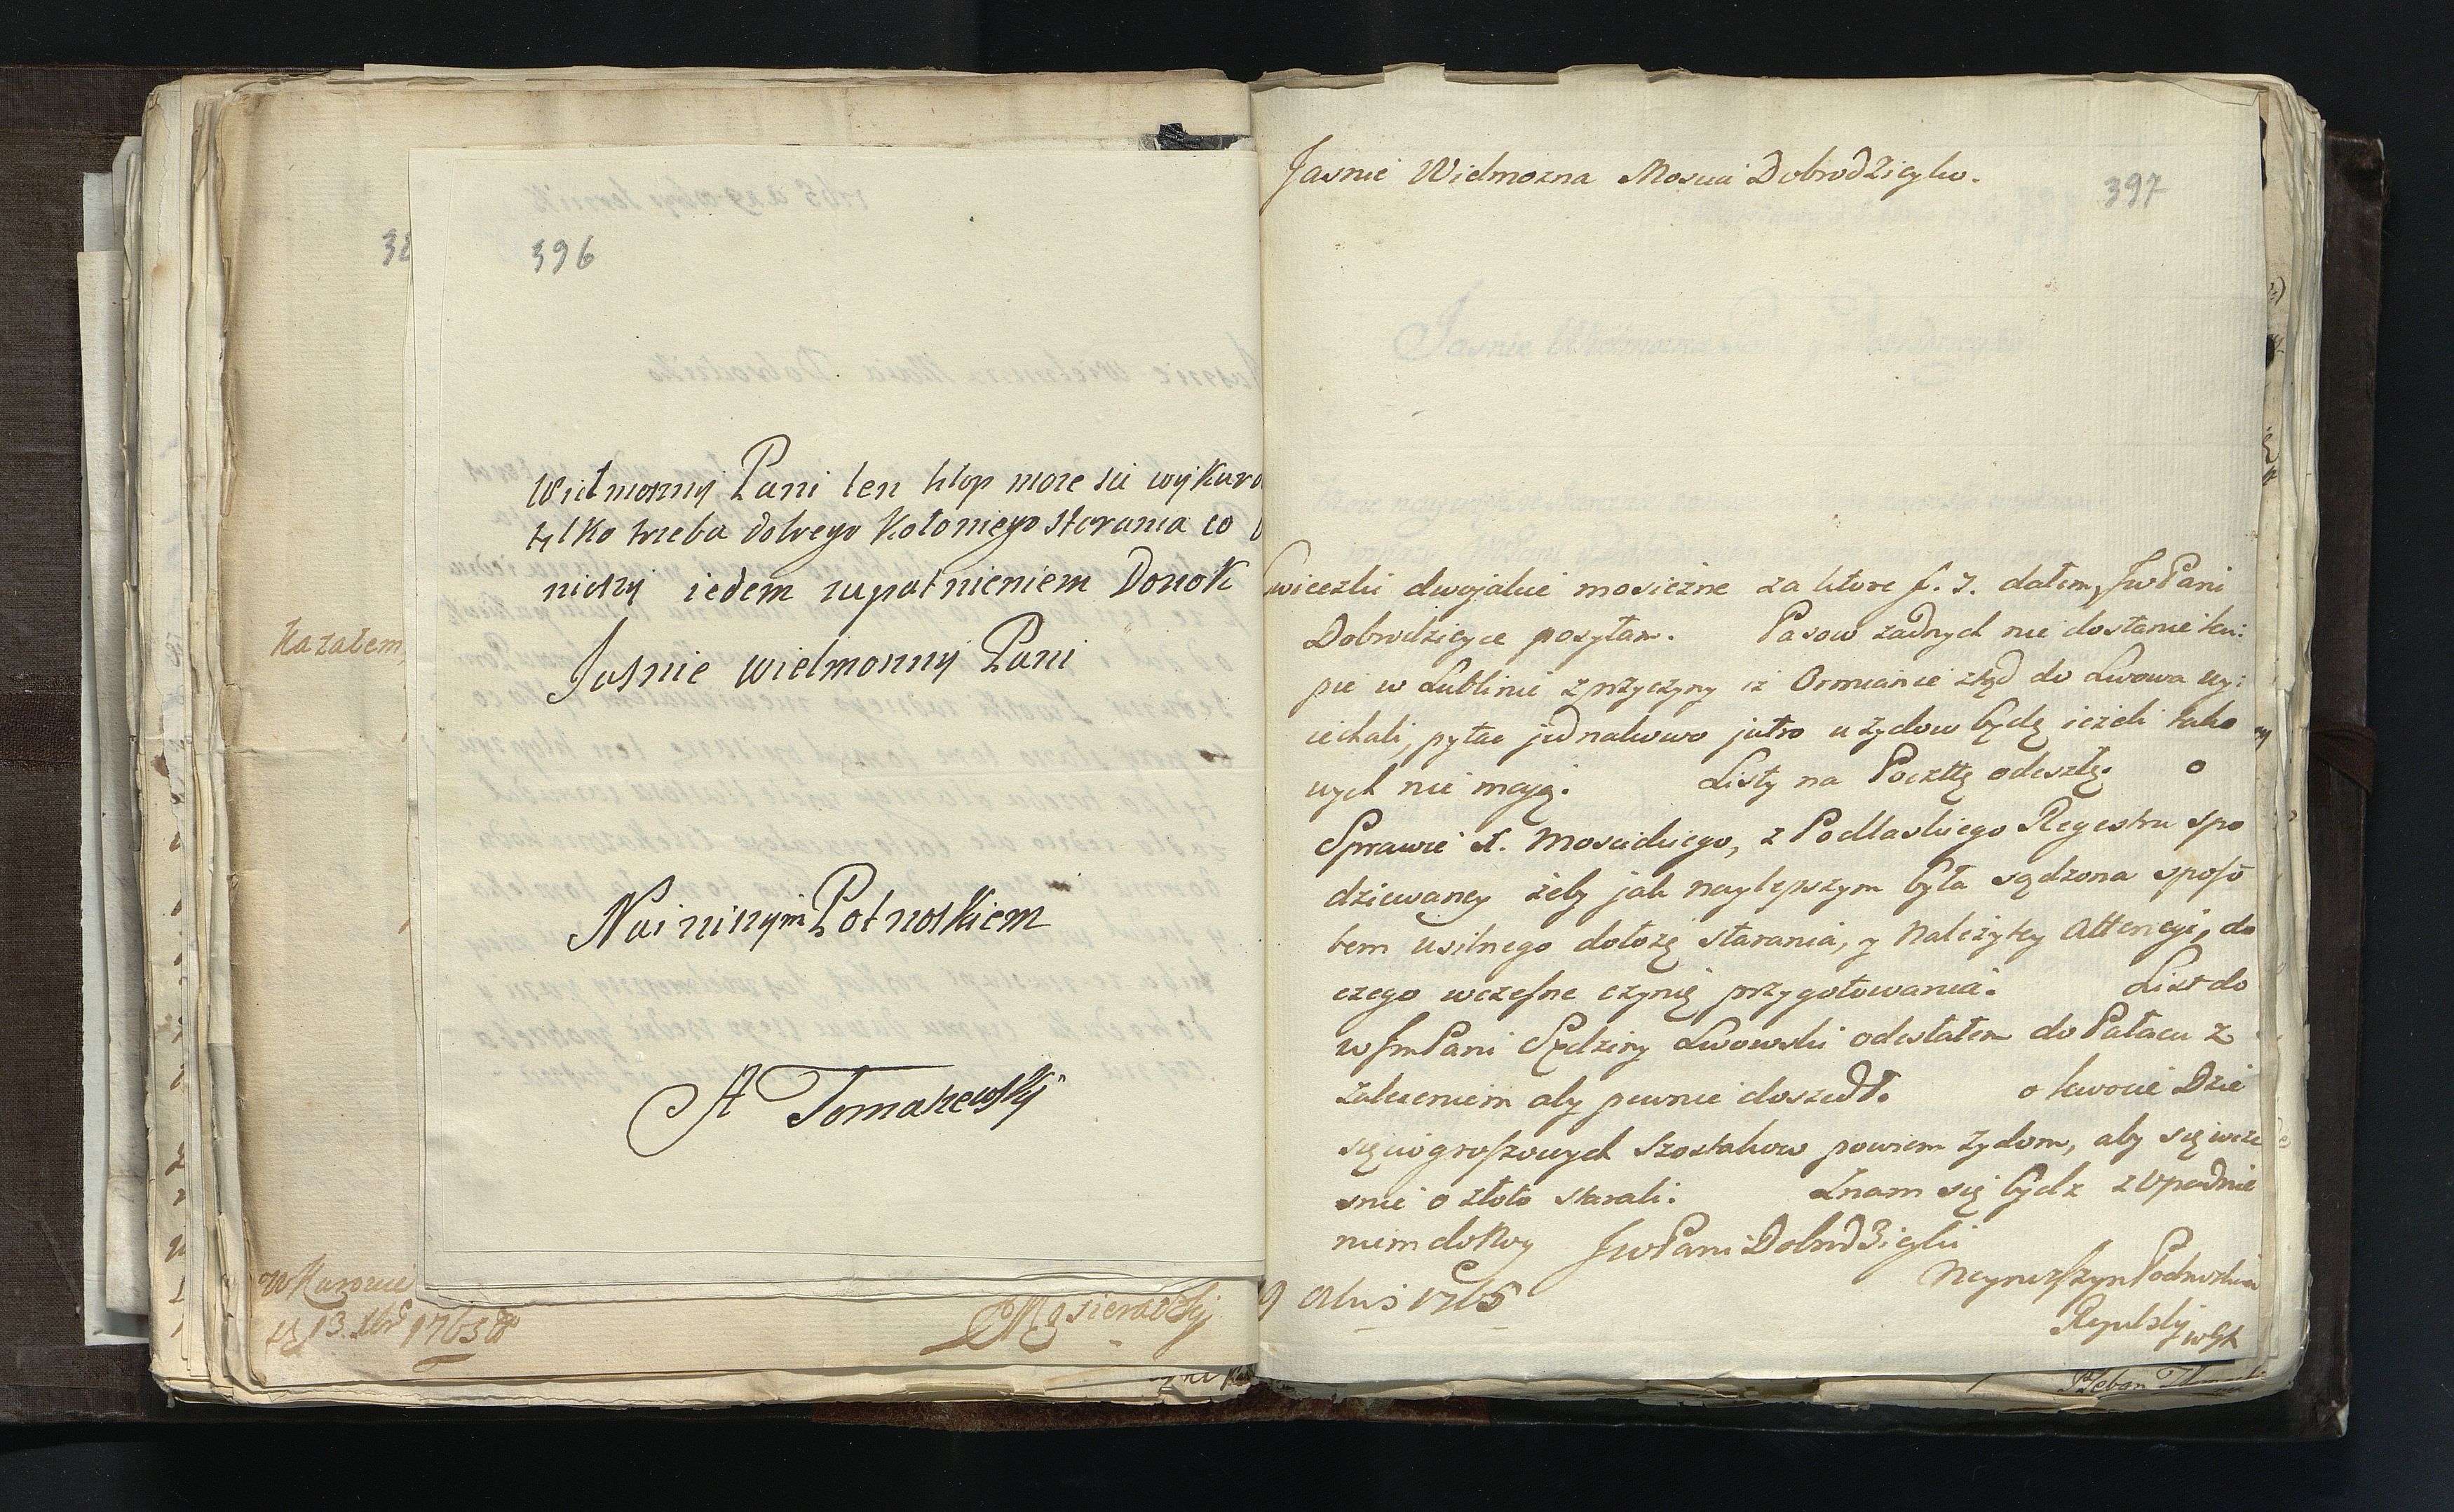 396
Wielmorny Pani ten hłop more sie wykuro
tylko trzeba dobrego kołoniego starania co
niższy iedem zupałnieniem Donok
Jasnie wielmornny Pani
Nainiszym Potnoskiem
A Tomaszewskÿ
Kazałem,
w Kurowie
d 13. Xbr 1765 Ro
MGsierowsky
Jasnie Wielmozna Moscia Dobrodzieyko.
397
Cwieczki dwojakie mosiezne za ktore f. 7. dałem, JwPani
Dobrodzieyce posyłam. Pasow zadnych nie dostanie ku:
pie w Lublinie z przyczyny iz Ormianie ztąd do Lwowa uy:
iechali, pytac jednakowo jutro u zydow będę iezeli tako
wych nie mają. Listy na Pocztę odeszlę. o
Sprawie J. Moscickiego, z Podlaskiego Regestru spo
dziewaney zeby jak naylepszym była sądzona sposo
bem usilnego dołozę starania, y nalezytey attencyi, do
czego wczesne czynię przygotowania. List do
w JmPani Sędziny Lwowski odesłałem do Pałacu z
zaleceniem aby pewnie doszedł. o kwocie Dzie
sięciogroszowych szostakow powiem zydom, aby się wcze
snie o złoto starali. Znam się bydz z Upadnie
niem do Nog JwPani Dobrodzieyki
Nayniższym Podnozkiem
9 Xbris 1765
Rypulski